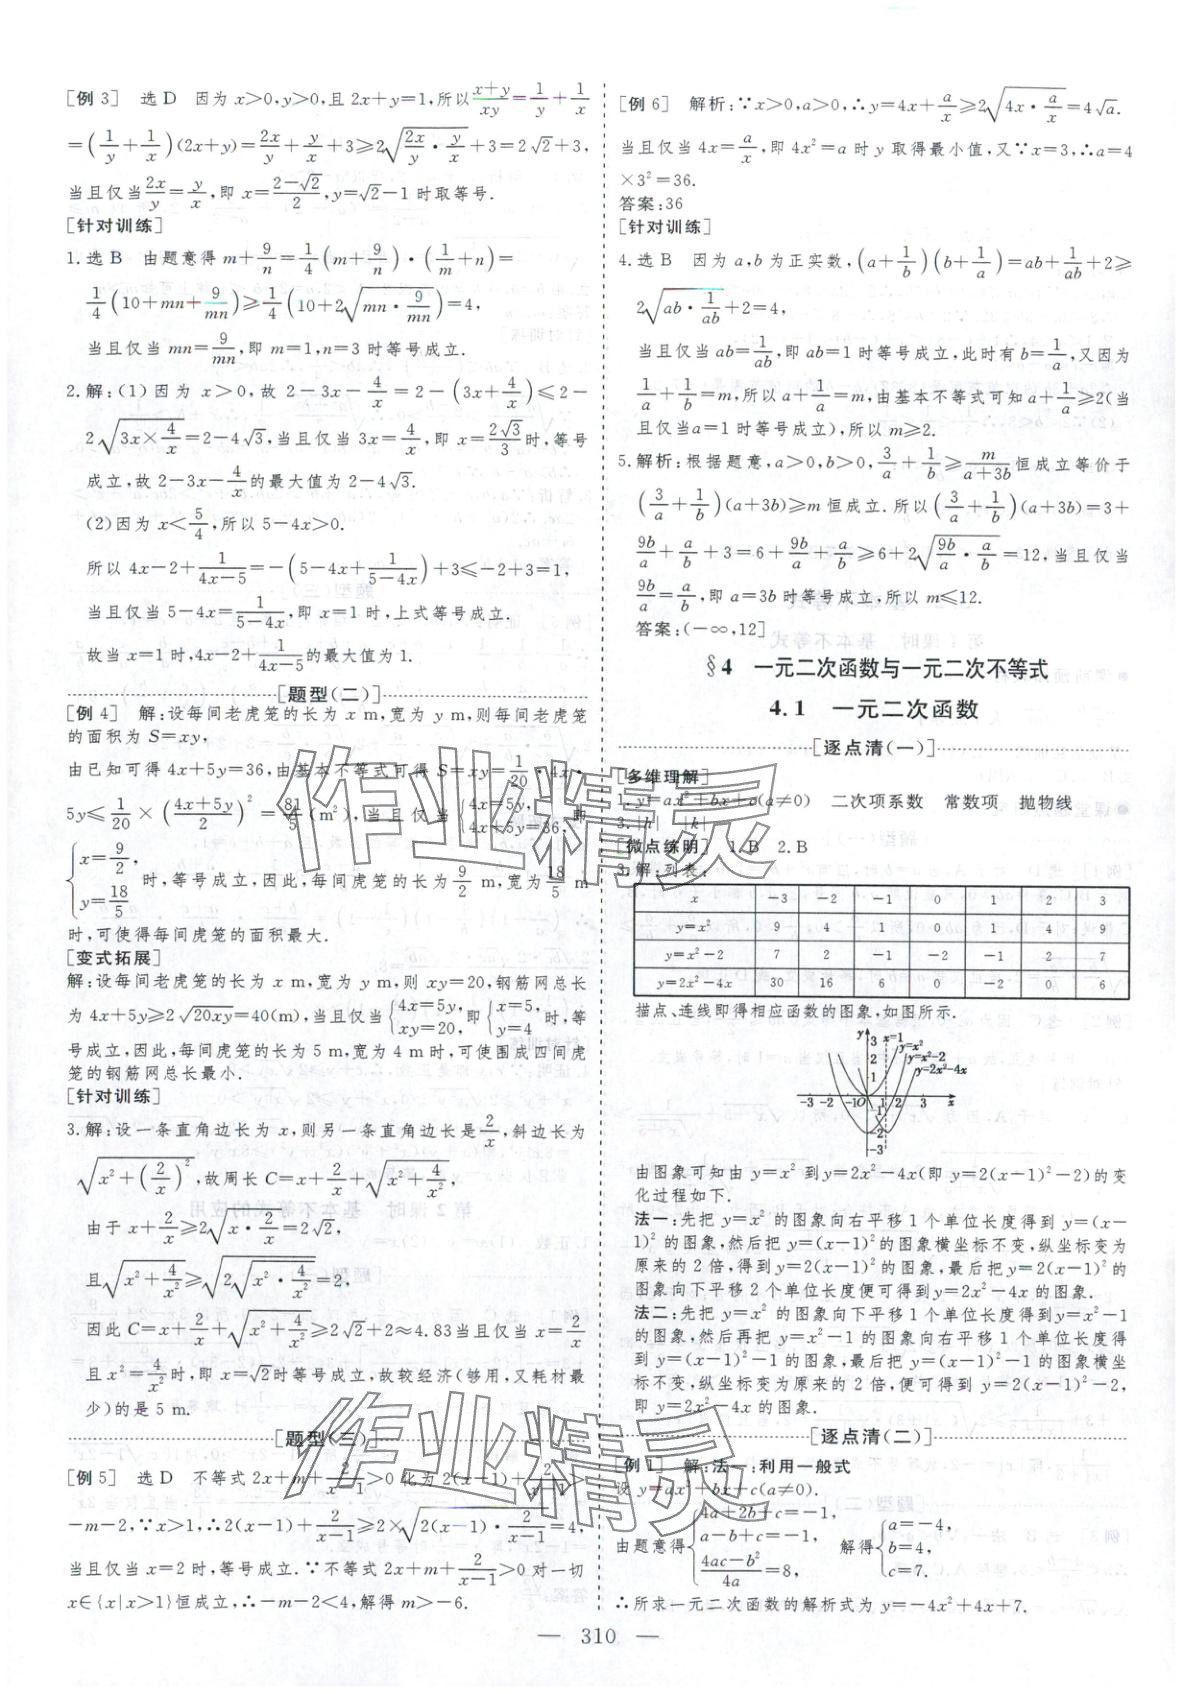 [例3] 选D 因为x>0,y>0,且2x+y=1,所以(x+y)/(xy)=1/y+1/x
=(1/y+1/x)(2x+y)=2x/y+y/x+3≥2√(2x/y·y/x)+3=2√2+3,
当且仅当2x/y=y/x,即x=(2-√2)/2,y=√2-1时取等号.
[针对训练]
1.选B 由题意得m+9/n=1/4(m+9/n)·(1/m+n)=
1/4(10+mn+9/mn)≥1/4(10+2√(mn·9/mn))=4,
当且仅当mn=9/mn,即m=1,n=3时等号成立.
2.解:(1)因为x>0,故2-3x-4/x=2-(3x+4/x)≤2-
2√(3x×4/x)=2-4√3,当且仅当3x=4/x,即x=2√3/3时,等号
成立,故2-3x-4/x的最大值为2-4√3.
(2)因为x<5/4,所以5-4x>0.
所以4x-2+1/(4x-5)=-(5-4x+1/(5-4x))+3≤-2+3=1,
当且仅当5-4x=1/(5-4x),即x=1时,上式等号成立.
故当x=1时,4x-2+1/(4x-5)的最大值为1.
[题型(二)]
[例4] 解:设每间老虎笼的长为x m,宽为y m,则每间老虎笼
的面积为S=xy,
由已知可得4x+5y=36,由基本不等式可得S=xy=1/20·4x·
5y≤1/20×((4x+5y)/2)²=81/5(m²),当且仅当{4x=5y, 4x+5y=36,即
{x=9/2, y=18/5时,等号成立,因此,每间虎笼的长为9/2 m,宽为18/5 m
时,可使得每间虎笼的面积最大.
[变式拓展]
解:设每间老虎笼的长为x m,宽为y m,则xy=20,钢筋网总长
为4x+5y≥2√(20xy)=40(m),当且仅当{4x=5y, xy=20,即{x=5, y=4时,等
号成立,因此,每间虎笼的长为5 m,宽为4 m时,可使围成四间虎
笼的钢筋网总长最小.
[针对训练]
3.解:设一条直角边长为x,则另一条直角边长是2/x,斜边长为
√(x²+(2/x)²),故周长C=x+2/x+√(x²+4/x²),
由于x+2/x≥2√(x·2/x)=2√2,
且√(x²+4/x²)≥√(2√(x²·4/x²))=2,
因此C=x+2/x+√(x²+4/x²)≥2√2+2≈4.83当且仅当x=2/x
且x²=4/x²时,即x=√2时等号成立,故较经济(够用,又耗材最
少)的是5 m.
[题型(三)]
[例5] 选D 不等式2x+m+2/(x-1)>0化为2(x-1)+2/(x-1)>
-m-2,∵x>1,∴2(x-1)+2/(x-1)≥2×√(2(x-1)·2/(x-1))=4,
当且仅当x=2时,等号成立.∵不等式2x+m+2/(x-1)>0对一切
x∈{x|x>1}恒成立,∴-m-2<4,解得m>-6.
[例6] 解析:∵x>0,a>0,∴y=4x+a/x≥2√(4x·a/x)=4√a.
当且仅当4x=a/x,即4x²=a时y取得最小值,又∵x=3,∴a=4
×3²=36.
答案:36
[针对训练]
4.选B 因为a,b为正实数,(a+1/b)(b+1/a)=ab+1/ab+2≥
2√(ab·1/ab)+2=4,
当且仅当ab=1/ab,即ab=1时等号成立,此时有b=1/a,又因为
1/a+1/b=m,所以a+1/a=m,由基本不等式可知a+1/a≥2(当
且仅当a=1时等号成立),所以m≥2.
5.解析:根据题意,a>0,b>0,3/a+1/b≥m/(a+3b)恒成立等价于
(3/a+1/b)(a+3b)≥m恒成立.所以(3/a+1/b)(a+3b)=3+
9b/a+a/b+3=6+9b/a+a/b≥6+2√(9b/a·a/b)=12,当且仅当
9b/a=a/b,即a=3b时等号成立,所以m≤12.
答案:(-∞,12]
§4 一元二次函数与一元二次不等式
4.1 一元二次函数
[逐点清(一)]
[多维理解]
1.y=ax²+bx+c(a≠0) 二次项系数 常数项 抛物线
3.|h| |k|
[微点练明] 1.B 2.B
3.解:列表:
x -3 -2 -1 0 1 2 3
y=x² 9 4 1 0 1 4 9
y=x²-2 7 2 -1 -2 -1 2 7
y=2x²-4x 30 16 6 0 -2 0 6
描点、连线即得相应函数的图象,如图所示.
y 3 2 1 x=1 y=x² y=x²-2 y=2x²-4x
-3 -2 -1O 1 2 3 x
-2
-3
由图象可知由y=x²到y=2x²-4x(即y=2(x-1)²-2)的变
化过程如下.
法一:先把y=x²的图象向右平移1个单位长度得到y=(x-
1)²的图象,然后把y=(x-1)²的图象横坐标不变,纵坐标变为
原来的2倍,得到y=2(x-1)²的图象,最后把y=2(x-1)²的
图象向下平移2个单位长度便可得到y=2x²-4x的图象.
法二:先把y=x²的图象向下平移1个单位长度得到y=x²-1
的图象,然后再把y=x²-1的图象向右平移1个单位长度得
到y=(x-1)²-1的图象,最后把y=(x-1)²-1的图象横坐
标不变,纵坐标变为原来的2倍,便可得到y=2(x-1)²-2,
即y=2x²-4x的图象.
[逐点清(二)]
[例1] 解:法一:利用一般式
设y=ax²+bx+c(a≠0).
由题意得{4a+2b+c=-1, a-b+c=-1, (4ac-b²)/4a=8, 解得{a=-4, b=4, c=7.
∴所求一元二次函数的解析式为y=-4x²+4x+7.
— 310 —
作业精灵
作业精灵